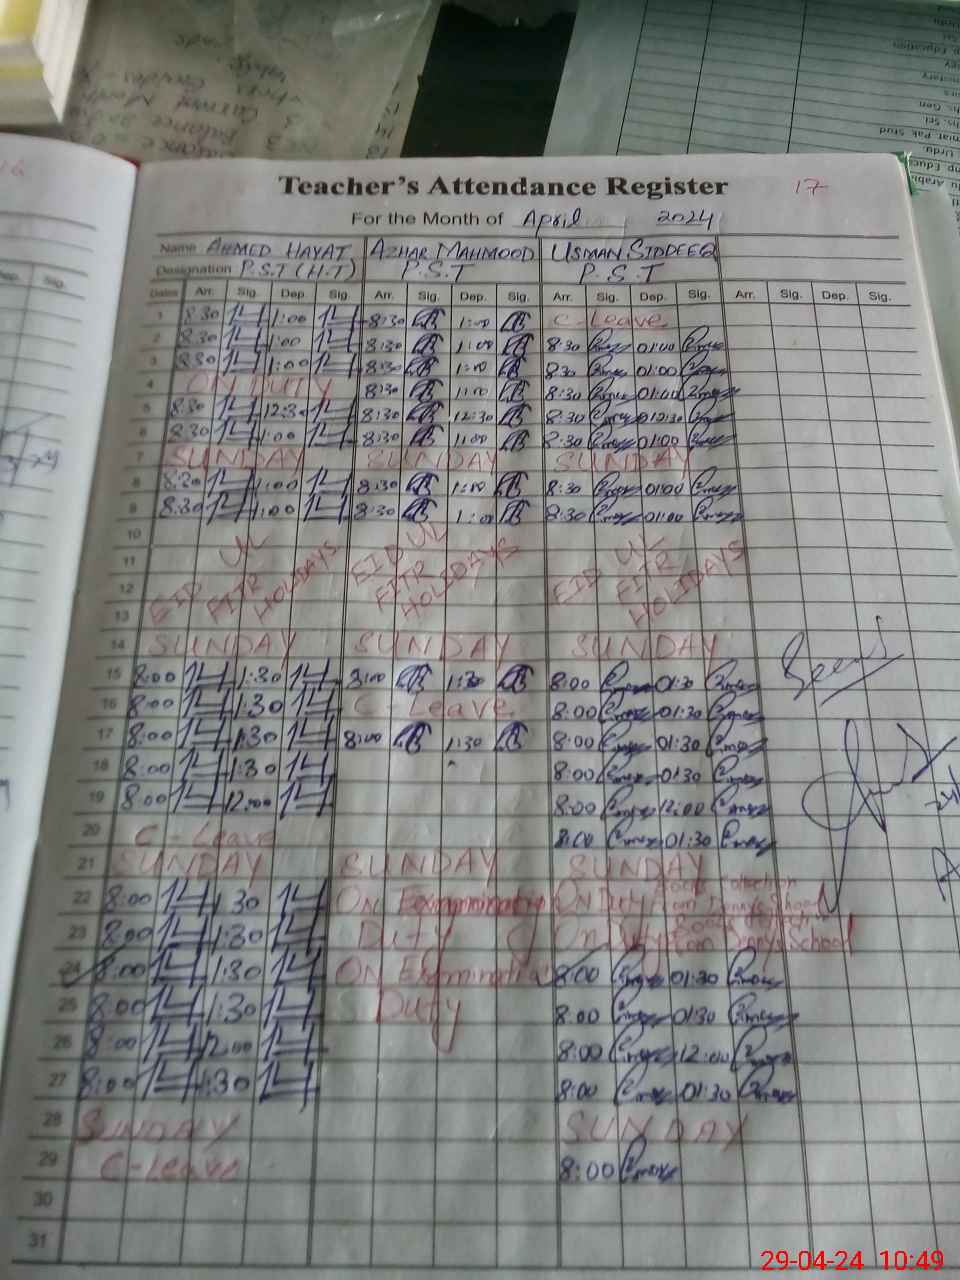 Teacher's Attendance Register 17
For the Month of April 2024
Name AHMED HAYAT AZHAR MAHMOOD USMAN SIDDEEQ
Designation P.S.T (H.T) P.S.T P.S.T
Dates Arr. Sig. Dep. Sig. Arr. Sig. Dep. Sig. Arr. Sig. Dep. Sig. Arr. Sig. Dep. Sig.
1 8:30 1:00 8:30 1:00 C-Leave
2 8:30 1:00 8:30 1:00 8:30 01:00
3 8:30 1:00 8:30 1:00 8:30 01:00
4 ON DUTY 8:30 1:00 8:30 01:00
5 8:30 12:30 8:30 12:30 8:30 012:30
6 8:30 1:00 8:30 1:00 8:30 01:00
7 SUNDAY SUNDAY SUNDAY
8 8:30 1:00 8:30 1:00 8:30 01:00
9 8:30 1:00 8:30 1:00 8:30 01:00
10
11 EID UL FITR HOLIDAYS EID UL FITR HOLIDAYS EID UL FITR HOLIDAYS
12
13
14 SUNDAY SUNDAY SUNDAY
15 8:00 1:30 8:00 1:30 8:00 01:30
16 8:00 1:30 C-Leave 8:00 01:30
17 8:00 1:30 8:00 1:30 8:00 01:30
18 8:00 1:30 8:00 01:30
19 8:00 12:00 8:00 12:00
20 C-Leave 8:00 01:30
21 SUNDAY SUNDAY SUNDAY
22 8:00 1:30 ON Examination ON Duty Books Collection From School
23 8:00 1:30 Duty On Duty From School
24 8:00 1:30 ON Examination 8:00 01:30
25 8:00 1:30 Duty 8:00 01:30
26 8:00 12:00 8:00 12:00
27 8:00 1:30 8:00 01:30
28 SUNDAY SUNDAY
29 C-Leave 8:00
30
31
Seen
29-04-24 10:49